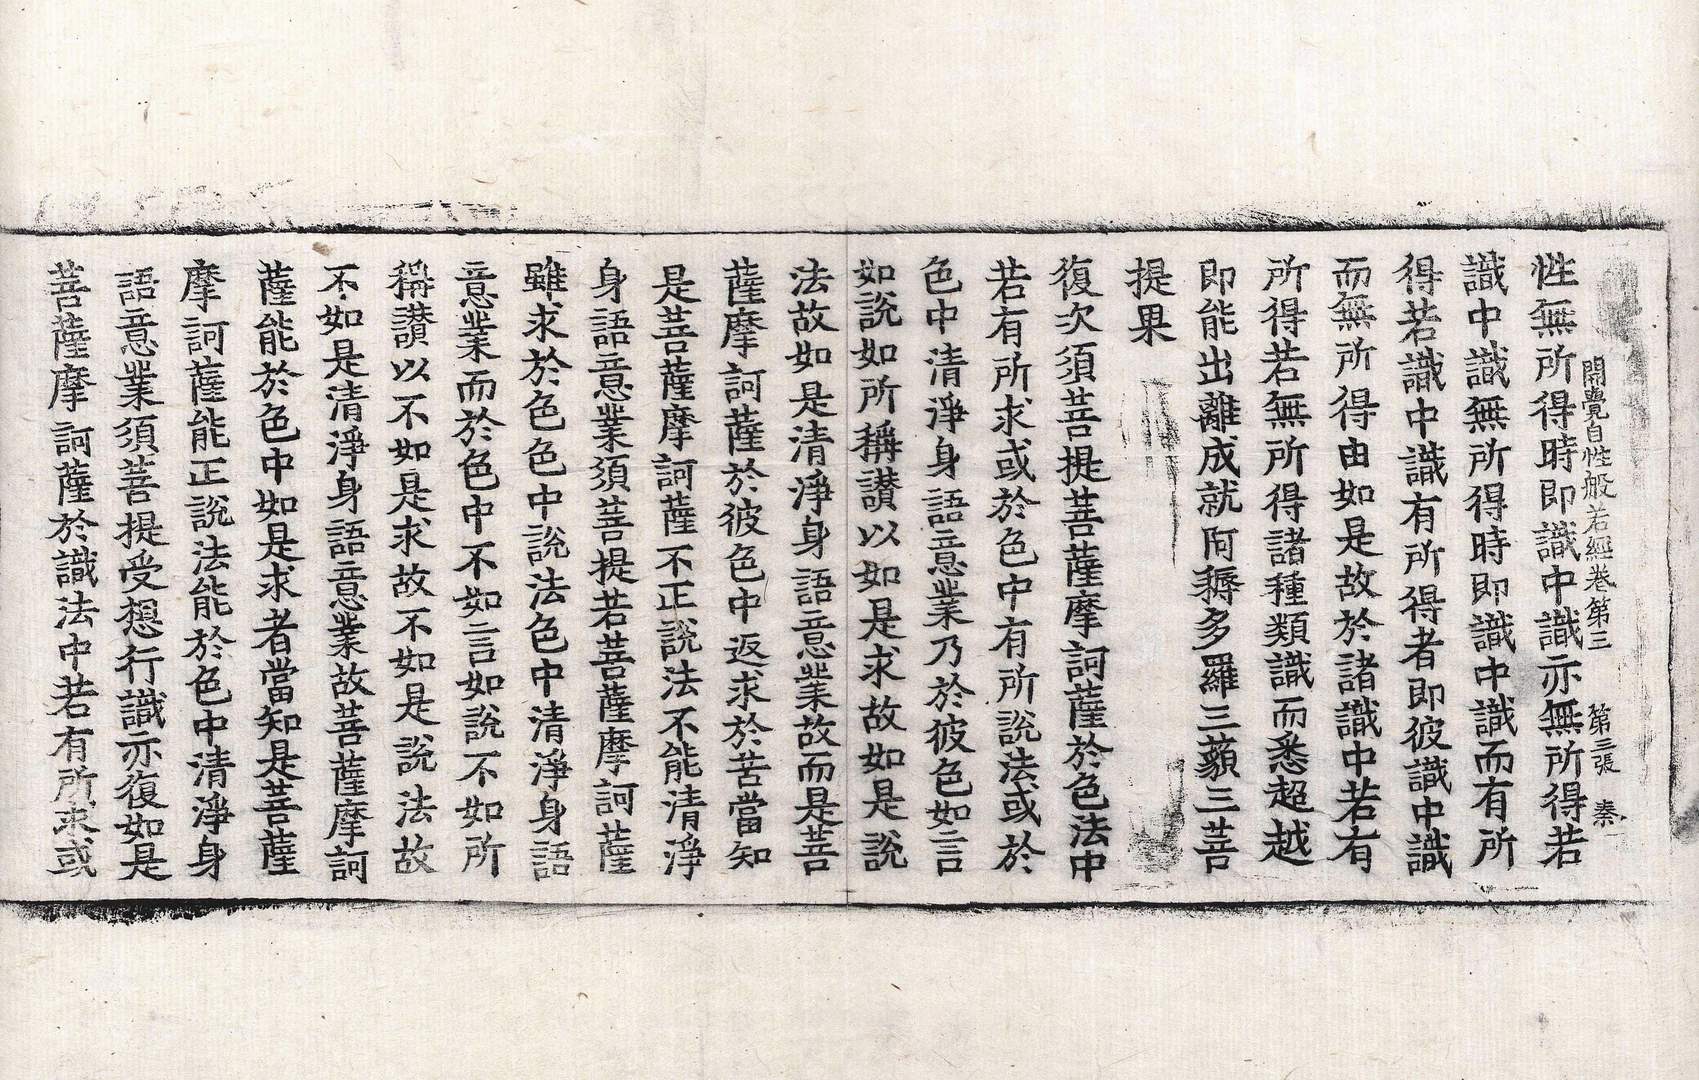 開覺自性般若經卷第三 第三張 秦
性無所得時即識中識亦無所得若
識中識無所得時即識中識而有所
得若識中識有所得者即彼識中識
而無所得由如是故於諸識中若有
所得若無所得諸種類識而悉超越
即能出離成就阿耨多羅三藐三菩
提果
復次須菩提菩薩摩訶薩於色法中
若有所求或於色中有所說法或於
色中清淨身語意業乃於彼色如言
如說如所稱讃以如是求故如是說
法故如是清淨身語意業故而是菩
薩摩訶薩於彼色中返求於苦當知
是菩薩摩訶薩不正說法不能清淨
身語意業須菩提若菩薩摩訶薩
雖求於色色中說法色中清淨身語
意業而於色中不如言如說不如所
稱讃以不如是求故不如是說法故
不如是清淨身語意業故菩薩摩訶
薩能於色中如是求者當知是菩薩
摩訶薩能正說法能於色中清淨身
語意業須菩提受想行識亦復如是
菩薩摩訶薩於識法中若有所求或